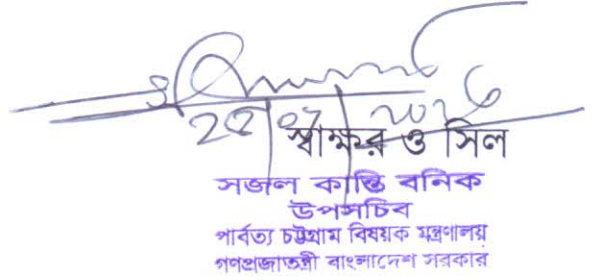 স্বাক্ষর ও সিল
সজল কান্তি বনিক
উপসচিব
পার্বত্য চট্টগ্রাম বিষয়ক মন্ত্রণালয়
গণপ্রজাতন্ত্রী বাংলাদেশ সরকার